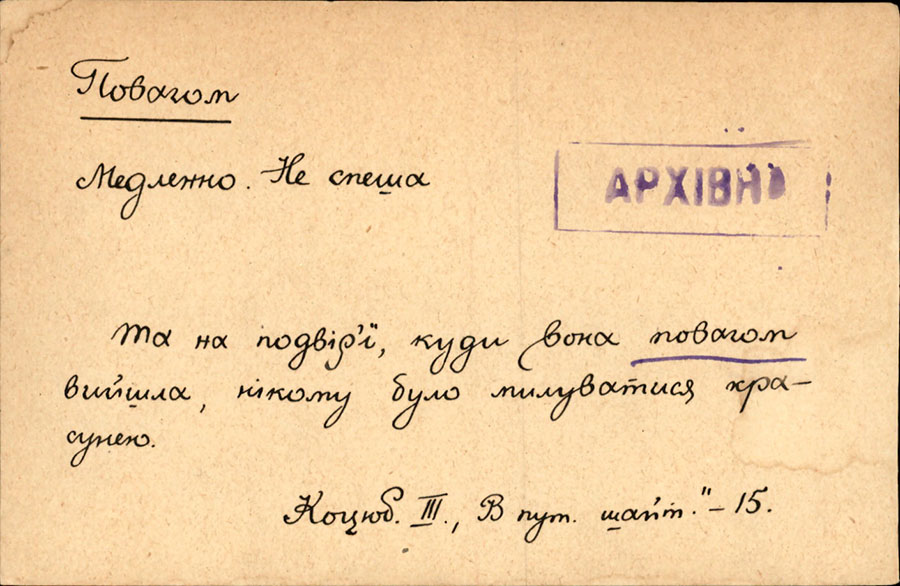 Повагом
Медленно. Не спеша
АРХІВН
Та на подвір'ї, куди вона повагом
вийшла, нікому було милуватися кра-
сунею.
Коцюб. III., В пут. шайт."– 15.